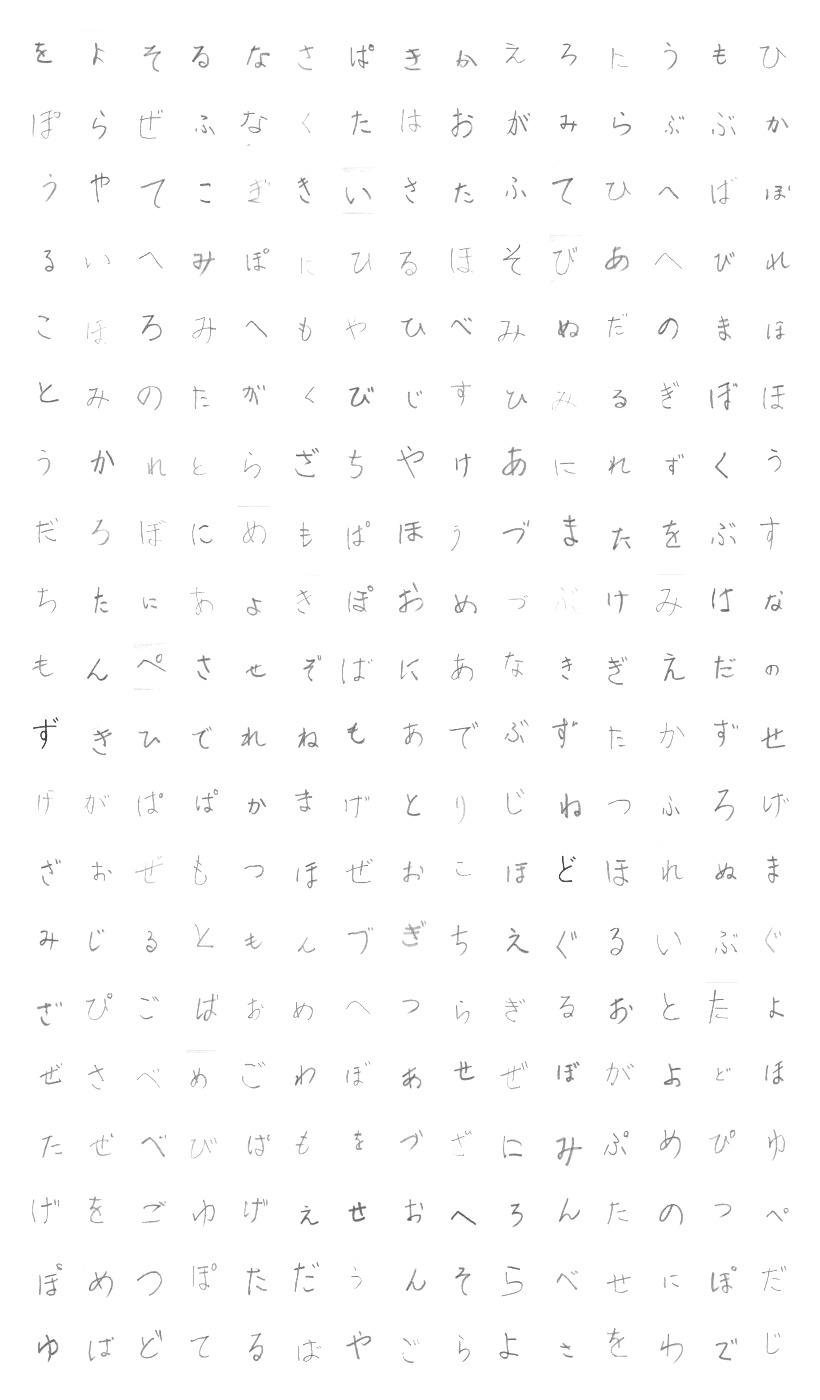 をよそるなさぱきかえろにうもひ
ぽらぜふなくたはおがみらぶぶか
うやてこぎきいさたふてひへばぼ
るいへみぽにひるほそびあへびれ
こほろみへもやひべみぬだのまほ
とみのたがくびじすひみるぎぼほ
うかれとらざちやけあにれずくう
だろぼにめもぱほぅづまたをぶす
ちたにあょきぽおめづぶけみはな
もんぺさせぞばにあなきぎえだの
ずきひでれねもあでぶずたかずせ
げがぱぱかまげとりじねつふろげ
ざおぜもつほぜおこほどほれぬま
みじるともんづぎちえぐるいぶぐ
ざぴごばおめへつらぎるおとたよ
ぜさべめごわぼあせぜぼがよどほ
たぜべびばもをづざにみぷめぴゆ
げをごゆげぇせおへろんたのつぺ
ぽめつぽただぅんそらべせにぽだ
ゆばどてるばやごらよさをわでじ